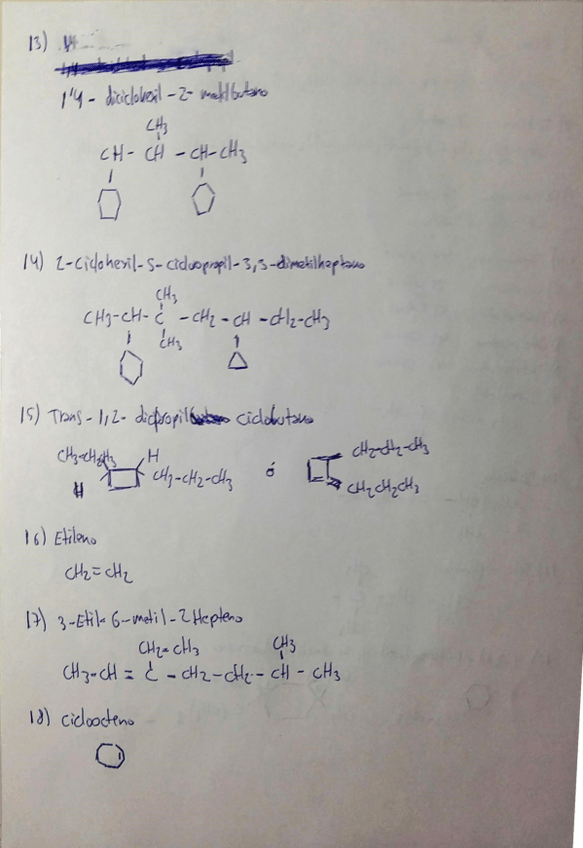 13)
1'4 - diciclohexil - 2 - metilbutano
CH3
CH - CH - CH - CH3
14) 2-Ciclohexil-5-ciclopropil-3,3-dimetilheptano
CH3
CH3-CH- C -CH2 - CH -CH2-CH3
CH3
15) Trans-1,2- dicpropil ciclobutano
H
CH2-CH2-CH3
CH3-CH2-CH3
ó
H
CH2CH2CH3
16) Etileno
CH2=CH2
17) 3-Etil-6-metil-2Hepteno
CH2-CH3
CH3
CH3-CH = C - CH2 - CH2 - CH - CH3
18) cicloocteno